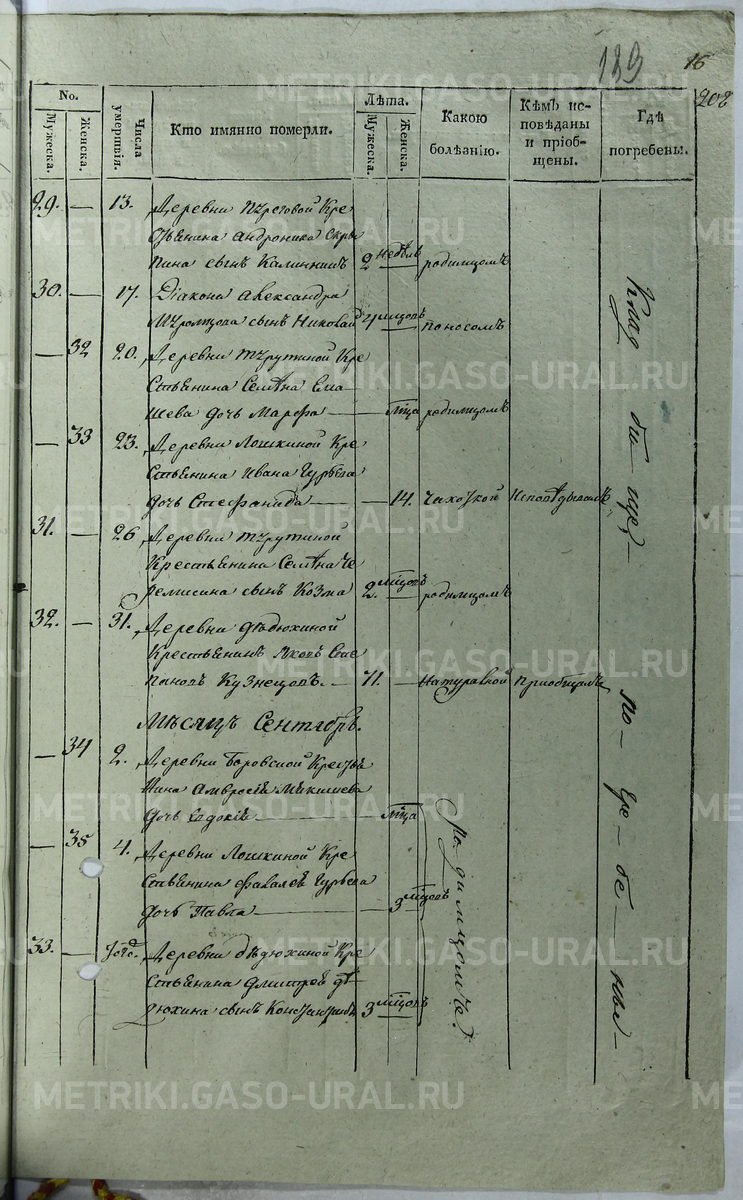 139
16
202
No. Лѣта.
Мужеска. Женска. Числа умершвія. Кто имянно померли. Мужеска. Женска. Какою болезнію. Кѣмъ исповѣданы и пріобщены. Гдѣ погребены.
29. — 13. Деревни Кре
стьянина Андроника
пина сынъ Калинникъ 2 недѣль — родимцомъ
30. — 17. Діакона Александра
сынъ Николай 4 мцовъ — поносомъ
— 32 20. Деревни Кре
стьянина Семена Ела
шева дочь Марфа — — мца родимцомъ
— 33 23. Деревни Лошкиной Кре
стьянина Ивана Гурьева
дочь Стефанида — — 14. Чахоткой Исповѣдыванъ
31. — 26 Деревни
Крестьянина Семена Че
ремисина сынъ Козма 2. мцовъ — родимцомъ
32. — 31. Деревни Дѣдюхиной
Крестьянинъ Яковъ Сте
пановъ Кузнецовъ. — 71. — натуральной Приобщенъ
Мѣсяцъ Сентябрь.
— 34 2. Деревни Боровской Крестья
нина Амвросія Микишева
дочь Евдокія — — мца
— 35 4. Деревни Лошкиной Кре
стьянина Гурьева
дочь Павла — — 3 мцовъ
33. — Деревни Дѣдюхиной Кре
стьянина Дмитрея Дѣ
дюхина сынъ Константинъ 3 мцовъ —
родимцомъ
Клад би щѣ
по гре бе ны
METRIKI.GASO-URAL.RU